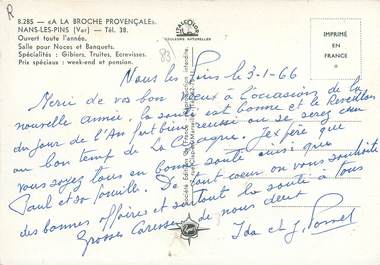 R
8.285 - «A LA BROCHE PROVENÇALE»
NANS-LES-PINS (Var) — Tél. 38.
Ouvert toute l'année.
Salle pour Noces et Banquets.
Spécialités : Gibiers, Truites, Ecrevisses.
Prix spéciaux : week-end et pension.
COULEURS NATURELLES
IMPRIMÉ
EN
FRANCE
83
Nans les Pins le 3-1-66
Merci de vos bons vœux à l'occasion de la
nouvelle année, la santé est bonne et le Réveillon
du jour de l'An fut bien réussi on se serait cru
au bon temps de La Cézagne. J'espère que
vous soyez tous en bonne santé ainsi que
Paul et sa famille. De tout cœur on vous souhaite
des bonnes affaires et surtout la santé à tous
Grosses Caresses de nous deux
Ida et J.